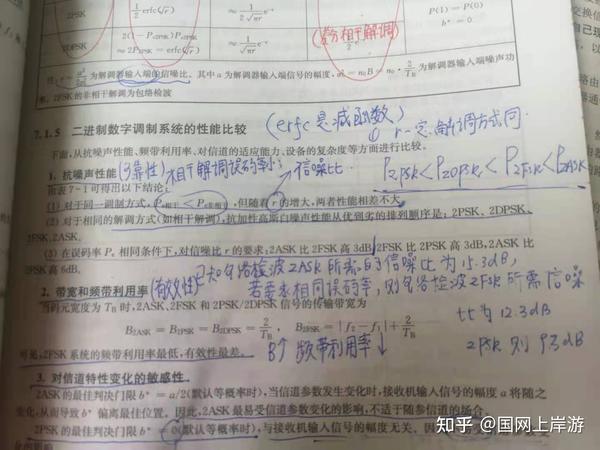 2PSK
½erfc(√r)
≈ 1/(2√πr) e⁻ʳ
P(1)=P(0)
b*=0
2DPSK
≈2P₂PSK=erfc(√r)
≈ 1/√πr e⁻ʳ
½e⁻ʳ
(差分相干解调)
为解调器输入端的信噪比。其中 a 为解调器输入端信号的幅度,
为解调器输入端噪声功
率。2FSK的非相干解调为包络检波
7.1.5 二进制数字调制系统的性能比较
(erfc是减函数)
① r一定,解调方式同.
下面,从抗噪声性能、频带利用率、对信道的适应能力、设备的复杂度等方面进行比较。
1. 抗噪声性能(可靠性) 相干解调误码率小
信噪比.
P2PSK<P2DPSK<P2FSK<P2ASK
由表 7-1 可得出以下结论:
(1) 对于同一调制方式,P相干<P非相干,但随着 r 的增大,两者性能相差不大。
(2) 对于相同的解调方式(如相干解调),抗加性高斯白噪声性能从优到劣的排列顺序是:2PSK、2DPSK、
2FSK、2ASK。
(3) 在误码率 Pₑ 相同条件下,对信噪比 r 的要求:2ASK 比 2FSK 高 3dB,2FSK 比 2PSK 高 3dB,2ASK 比
2PSK 高 6dB。
已知包络检波2ASK所需的信噪比为15.3dB,
2. 带宽和频带利用率(有效性)
若要求相同误码率,则包络检波2FSK所需信噪
比为12.3dB
2PSK则9.3dB
当码元宽度为 T_B 时,2ASK、2FSK 和 2PSK/2DPSK 信号的传输带宽为
B₂ASK=B₂PSK=B₂DPSK=2/T_B, B₂FSK=|f₂−f₁|+2/T_B
可见,2FSK 系统的频带利用率最低,有效性最差。
B↑ 频带利用率↓
3. 对信道特性变化的敏感性
2ASK 的最佳判决门限 b*=a/2(默认等概率时),当信道参数发生变化时,接收机输入信号的幅度 a 将随之
变化,从而导致 b* 偏离最佳位置。因此,2ASK 最易受信道参数变化的影响,不适于随参信道的场合。
2PSK 的最佳判决门限 b*=0(默认等概率时),与接收机输入信号的幅度无关,因
知乎 @国网上岸游